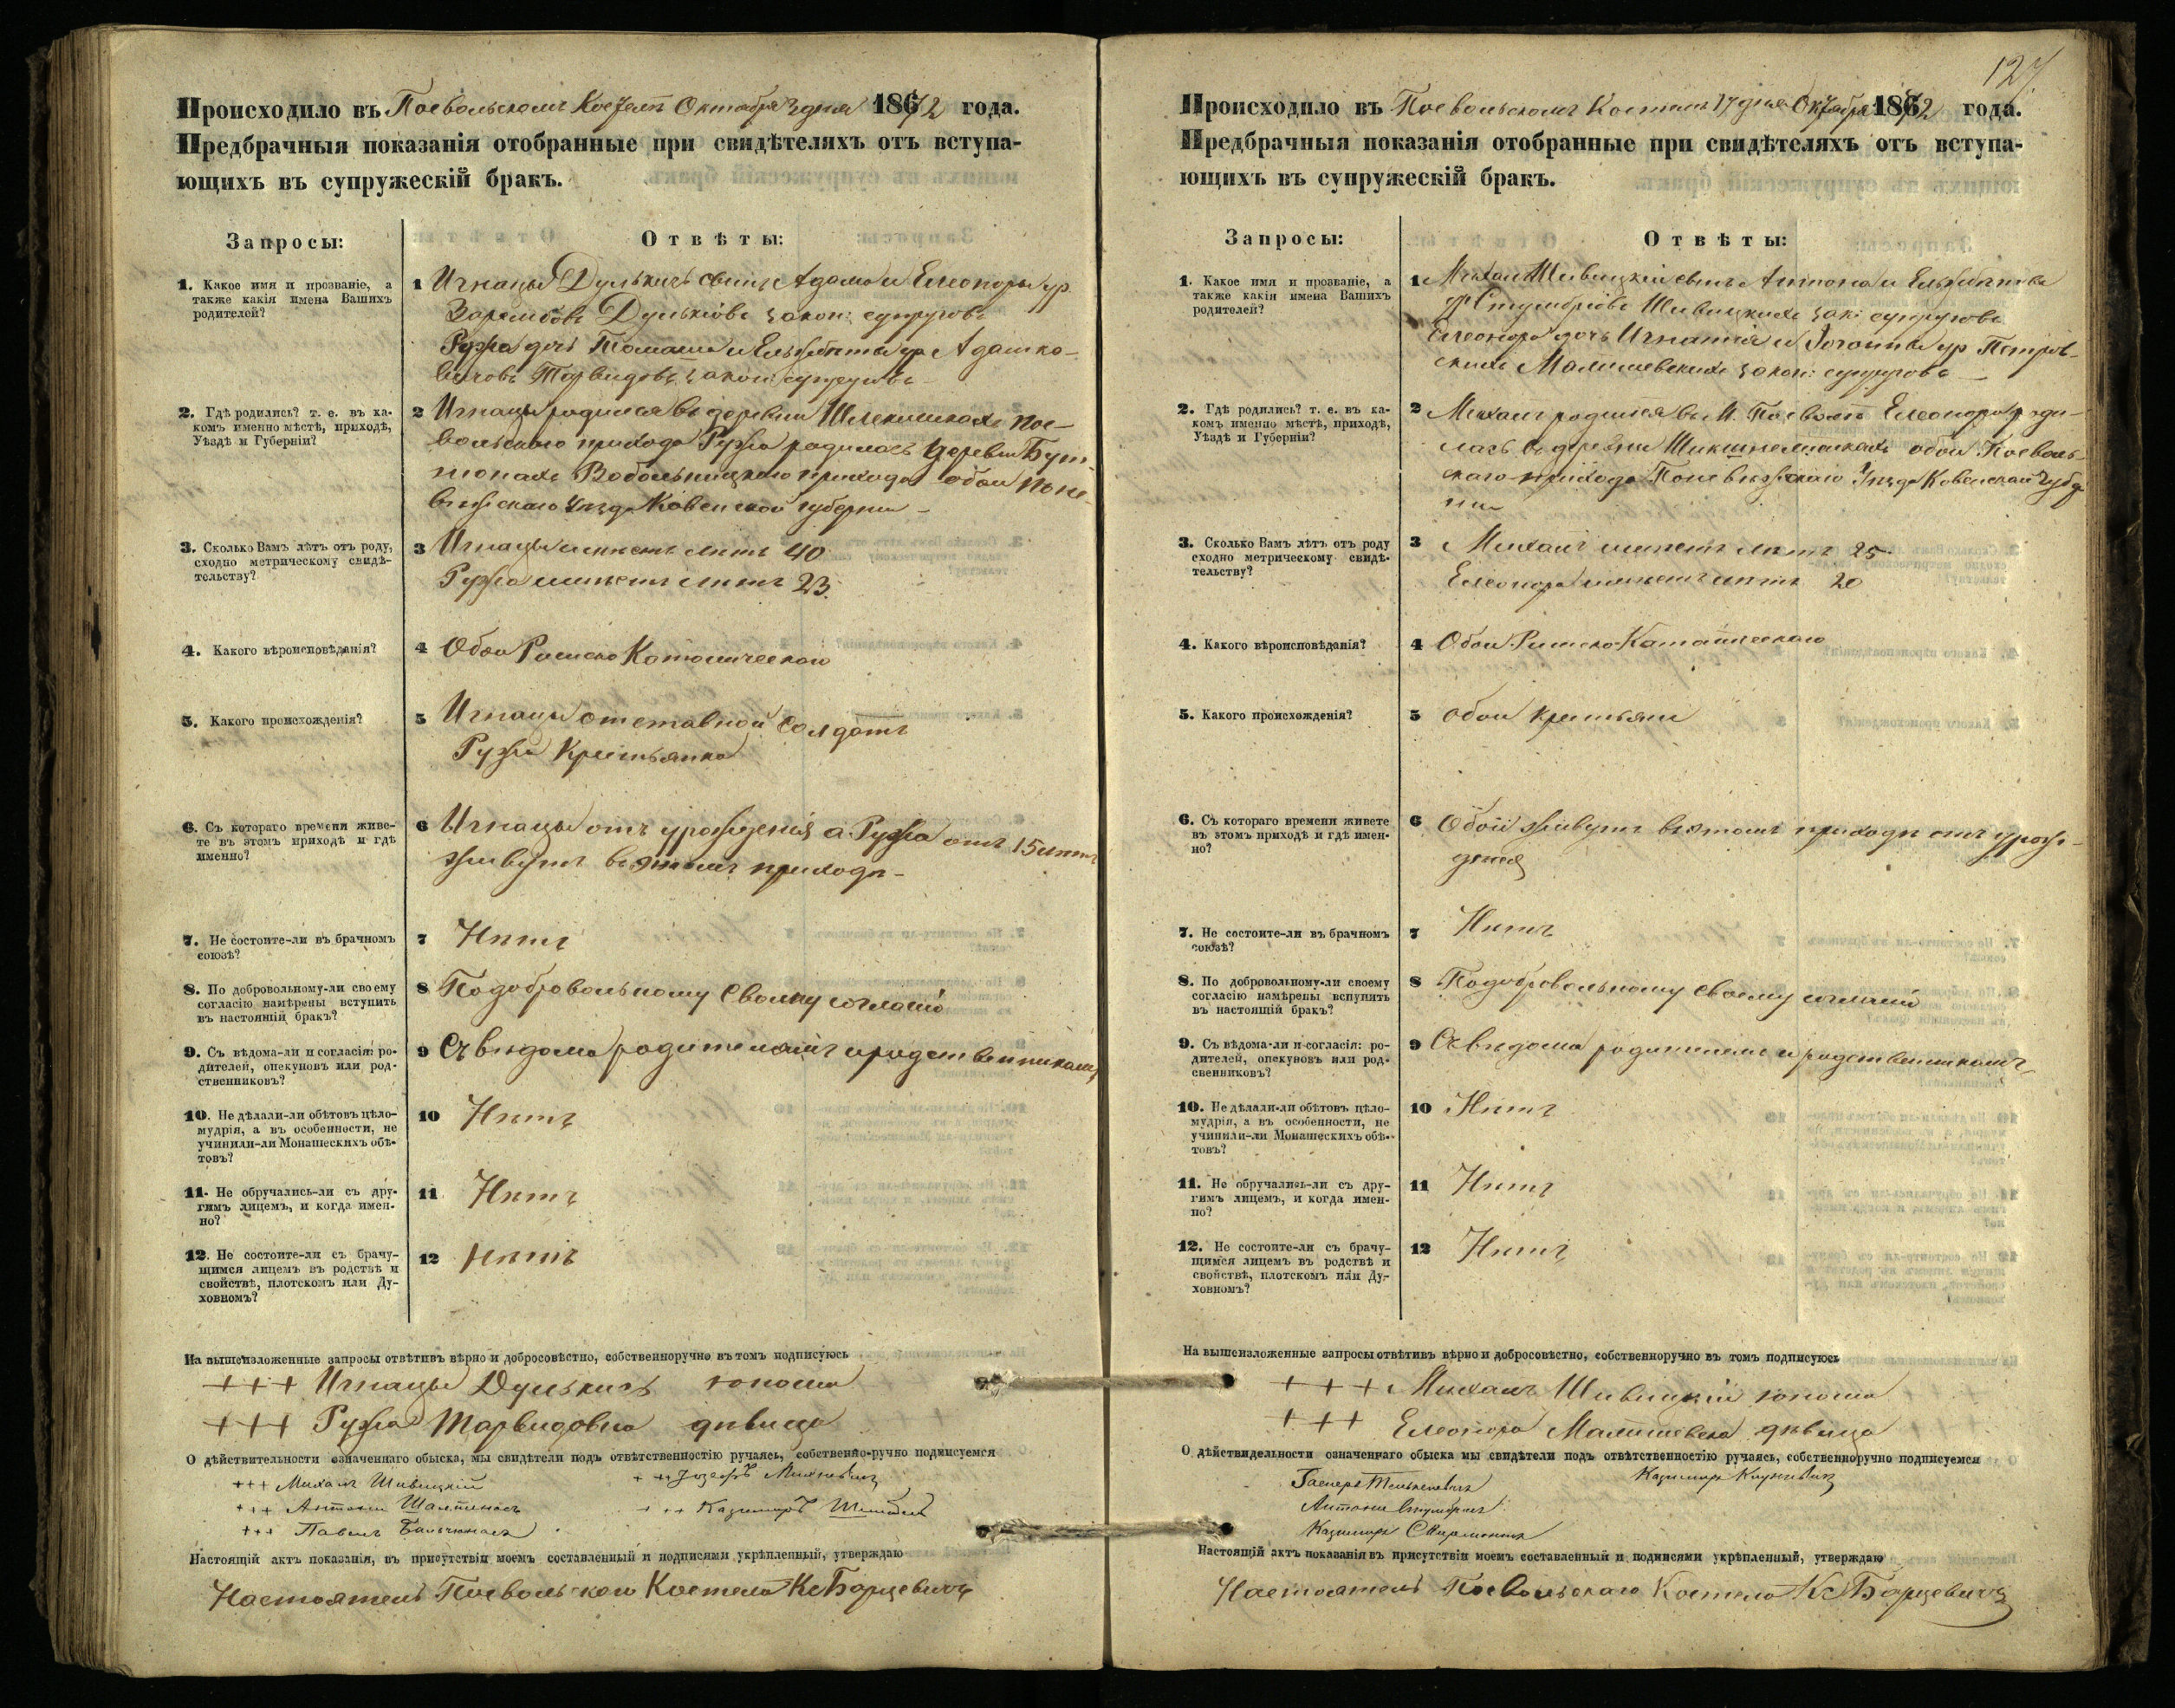 Происходило въ Поевольскомъ Костелѣ Октября дня 1872 года.
Предбрачныя показанія отобранные при свидѣтеляхъ отъ вступа-
ющихъ въ супружескій бракъ.
Запросы:
Отвѣты:
1. Какое имя и прозваніе, а
также какія имена Вашихъ
родителей?
1 Игнацы Дулькисъ сынъ Адама и Елеоноры ур
Дулькісовъ закон: супруговъ
Ружа дочь Томаша и Ельжбеты ур Адашко-
вичовъ Тарвидовъ закон: супруговъ
2. Гдѣ родились? т. е. въ ка-
комъ именно мѣстѣ, приходѣ,
Уѣздѣ и Губерніи?
2 Игнацы родился въ деревни Пое-
вольскаго прихода Ружа родилась деревни
Вобольницкаго прихода обои Поне-
вѣжскаго Уѣзда Ковенской губерніи
3. Сколько Вамъ лѣтъ отъ роду,
сходно метрическому свидѣ-
тельству?
3 Игнацы имѣетъ лѣтъ 40
Ружа имѣетъ лѣтъ 23.
4. Какого вѣроисповѣданія?
4 Обои Римско Католическаго
5. Какого происхожденія?
5 Игнацы отставной Солдатъ
Ружа Крестьянка
6. Съ котораго времени живе-
те въ этомъ приходѣ и гдѣ
именно?
6 Игнацы отъ урожденія а Ружа отъ 15 лѣтъ
живутъ въ этомъ приходѣ
7. Не состоите-ли въ брачномъ
союзѣ?
7 Нѣтъ
8. По добровольному-ли своему
согласію намѣрены вступить
въ настоящій бракъ?
8 По добровольному своему согласію
9. Съ вѣдома-ли и согласія: ро-
дителей, опекуновъ или род-
ственниковъ?
9 Съ вѣдома родителямъ и родственникамъ
10. Не дѣлали-ли обѣтовъ цѣло-
мудрія, а въ особенности, не
учинили-ли Монашескихъ обѣ-
товъ?
10 Нѣтъ
11. Не обручались-ли съ дру-
гимъ лицемъ, и когда имен-
но?
11 Нѣтъ
12. Не состоите-ли съ брачу-
щимся лицемъ въ родствѣ и
свойствѣ, плотскомъ или Ду-
ховномъ?
12 Нѣтъ
На вышеизложенные запросы отвѣтивъ вѣрно и добросовѣстно, собственноручно въ томъ подписуюсь
+++ Игнацы Дулькисъ юноша
+++ Ружа Тарвидовна дѣвица
О дѣйствительности означеннаго обыска, мы свидѣтели подъ отвѣтственностію ручаясь, собственно-ручно подписуемся
+++ Михаилъ Шивицкій
+++ Антони
+++ Павелъ
+++ Іозефъ
+++ Казимиръ
Настоящій актъ показанія, въ присутствіи моемъ составленный и подписями укрѣпленный, утверждаю
Настоятель Поевольскаго Костела К Барцевичъ
127
Происходило въ Поевольскомъ Костелѣ 17 дня Октября 1872 года.
Предбрачныя показанія отобранные при свидѣтеляхъ отъ вступа-
ющихъ въ супружескій бракъ.
Запросы:
Отвѣты:
1. Какое имя и прозваніе, а
также какія имена Вашихъ
родителей?
1 Михаилъ Шивицкій сынъ Антона и Ельжбеты
ур Стумбрісовъ Шивицкихъ зак: супруговъ
Елеонора дочь Игнатія и Доготы ур Петров-
скихъ Малишевскихъ закон: супруговъ
2. Гдѣ родились? т. е. въ ка-
комъ именно мѣстѣ, приходѣ,
Уѣздѣ и Губерніи?
2 Михаилъ родился въ М. Поеволѣ Елеонора роди-
лась въ деревни обои Поеволь-
скаго прихода Поневѣжскаго Уѣзда Ковенской Губер
ніи
3. Сколько Вамъ лѣтъ отъ роду
сходно метрическому свидѣ-
тельству?
3 Михаилъ имѣетъ лѣтъ 25
Елеонора имѣетъ лѣтъ 20
4. Какого вѣроисповѣданія?
4 Обои Римско Католическаго
5. Какого происхожденія?
5 Обои крестьяни
6. Съ котораго времени живете
въ этомъ приходѣ и гдѣ имен-
но?
6 Обои живутъ въ этомъ приходѣ отъ урож-
денія
7. Не состоите-ли въ брачномъ
союзѣ?
7 Нѣтъ
8. По добровольному-ли своему
согласію намѣрены вспупить
въ настоящій бракъ?
8 По добровольному своему согласію
9. Съ вѣдома-ли и согласія: ро-
дителей, опекуновъ или род-
свенниковъ?
9 Съ вѣдома родителемъ и родственникамъ
10. Не дѣлали-ли обѣтовъ цѣло-
мудрія, а въ особенности, не
учинили-ли Монашескихъ обѣ-
товъ?
10 Нѣтъ
11. Не обручались-ли съ дру-
гимъ лицемъ, и когда имен-
но?
11 Нѣтъ
12. Не состоите-ли съ брачу-
щимся лицемъ въ родствѣ и
свойствѣ, плотскомъ или Ду-
ховномъ?
12 Нѣтъ
На вышеизложенные запросы отвѣтивъ вѣрно и добросовѣстно, собственноручно въ томъ подписуюсь
+++ Михаилъ Шивицкій юноша
+++ Елеонора Малишевска дѣвица
О дѣйствидельности означеннаго обыска мы свидѣтели подъ отвѣтственностію ручаясь, собственноручно подписуемся
Гасперъ
Антони Стумбрисъ
Казимиръ
Казимиръ
Настоящій актъ показанія въ присутствіи моемъ составленный и подписями укрѣпленный, утверждаю
Настоятель Поевольскаго Костела К Барцевичъ